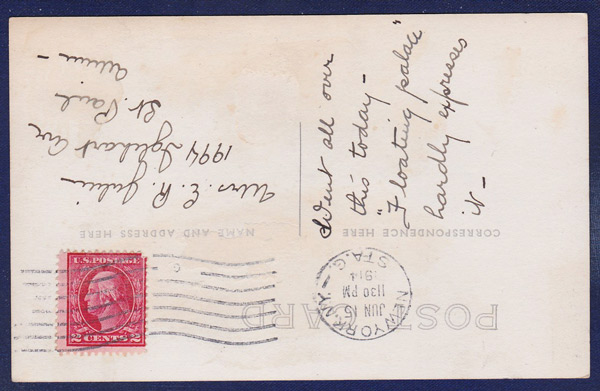 POST CARD
CORRESPONDENCE HERE
NAME AND ADDRESS HERE
NEW YORK, N.Y.
STA. G.
JUN 15
11 30 PM
1914
U.S. POSTAGE
2 CENTS 2
Went all over
this today -
"Floating palace"
hardly expresses
it -
Mrs. E. R.
1994 Iglehart Ave
St. Paul
Minn -